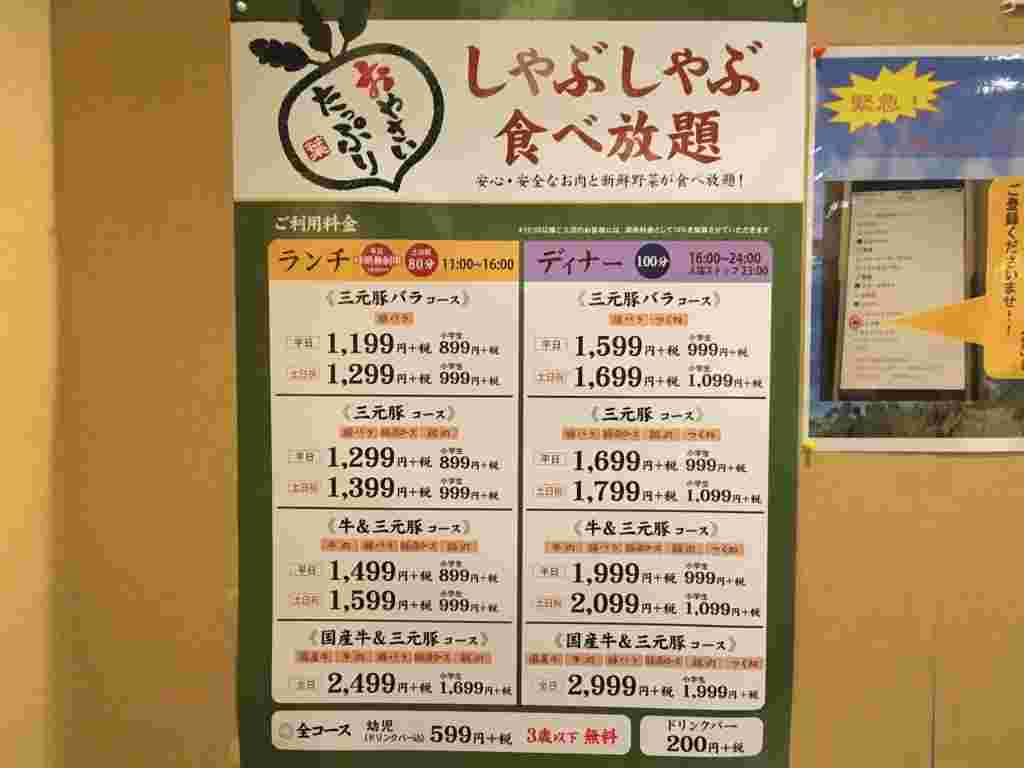 おやさい
たっぷり
葉
しゃぶしゃぶ
食べ放題
安心・安全なお肉と新鮮野菜が食べ放題！
ご利用料金
ランチ 平日 時間無制限 土日祝 80分 11:00~16:00
《三元豚バラコース》
豚バラ
平日 1,199円+税 小学生 899円+税
土日祝 1,299円+税 小学生 999円+税
《三元豚 コース》
豚バラ 豚肩ロース 鶏肉
平日 1,299円+税 小学生 899円+税
土日祝 1,399円+税 小学生 999円+税
《牛&三元豚 コース》
牛肉 豚バラ 豚肩ロース 鶏肉
平日 1,499円+税 小学生 899円+税
土日祝 1,599円+税 小学生 999円+税
《国産牛&三元豚 コース》
国産牛 牛肉 豚バラ 豚肩ロース 鶏肉
全日 2,499円+税 小学生 1,699円+税
ディナー 100分 16:00~24:00
入店ストップ 23:00
《三元豚バラコース》
豚バラ つくね
平日 1,599円+税 小学生 999円+税
土日祝 1,699円+税 小学生 1,099円+税
《三元豚 コース》
豚バラ 豚肩ロース 鶏肉 つくね
平日 1,699円+税 小学生 999円+税
土日祝 1,799円+税 小学生 1,099円+税
《牛&三元豚 コース》
牛肉 豚バラ 豚肩ロース 鶏肉 つくね
平日 1,999円+税 小学生 999円+税
土日祝 2,099円+税 小学生 1,099円+税
《国産牛&三元豚 コース》
国産牛 牛肉 豚バラ 豚肩ロース 鶏肉 つくね
全日 2,999円+税 小学生 1,999円+税
◎全コース 幼児 (ドリンクバー込) 599円+税 3歳以下 無料
ドリンクバー
200円+税
緊急！
ご登録くださいませ！！